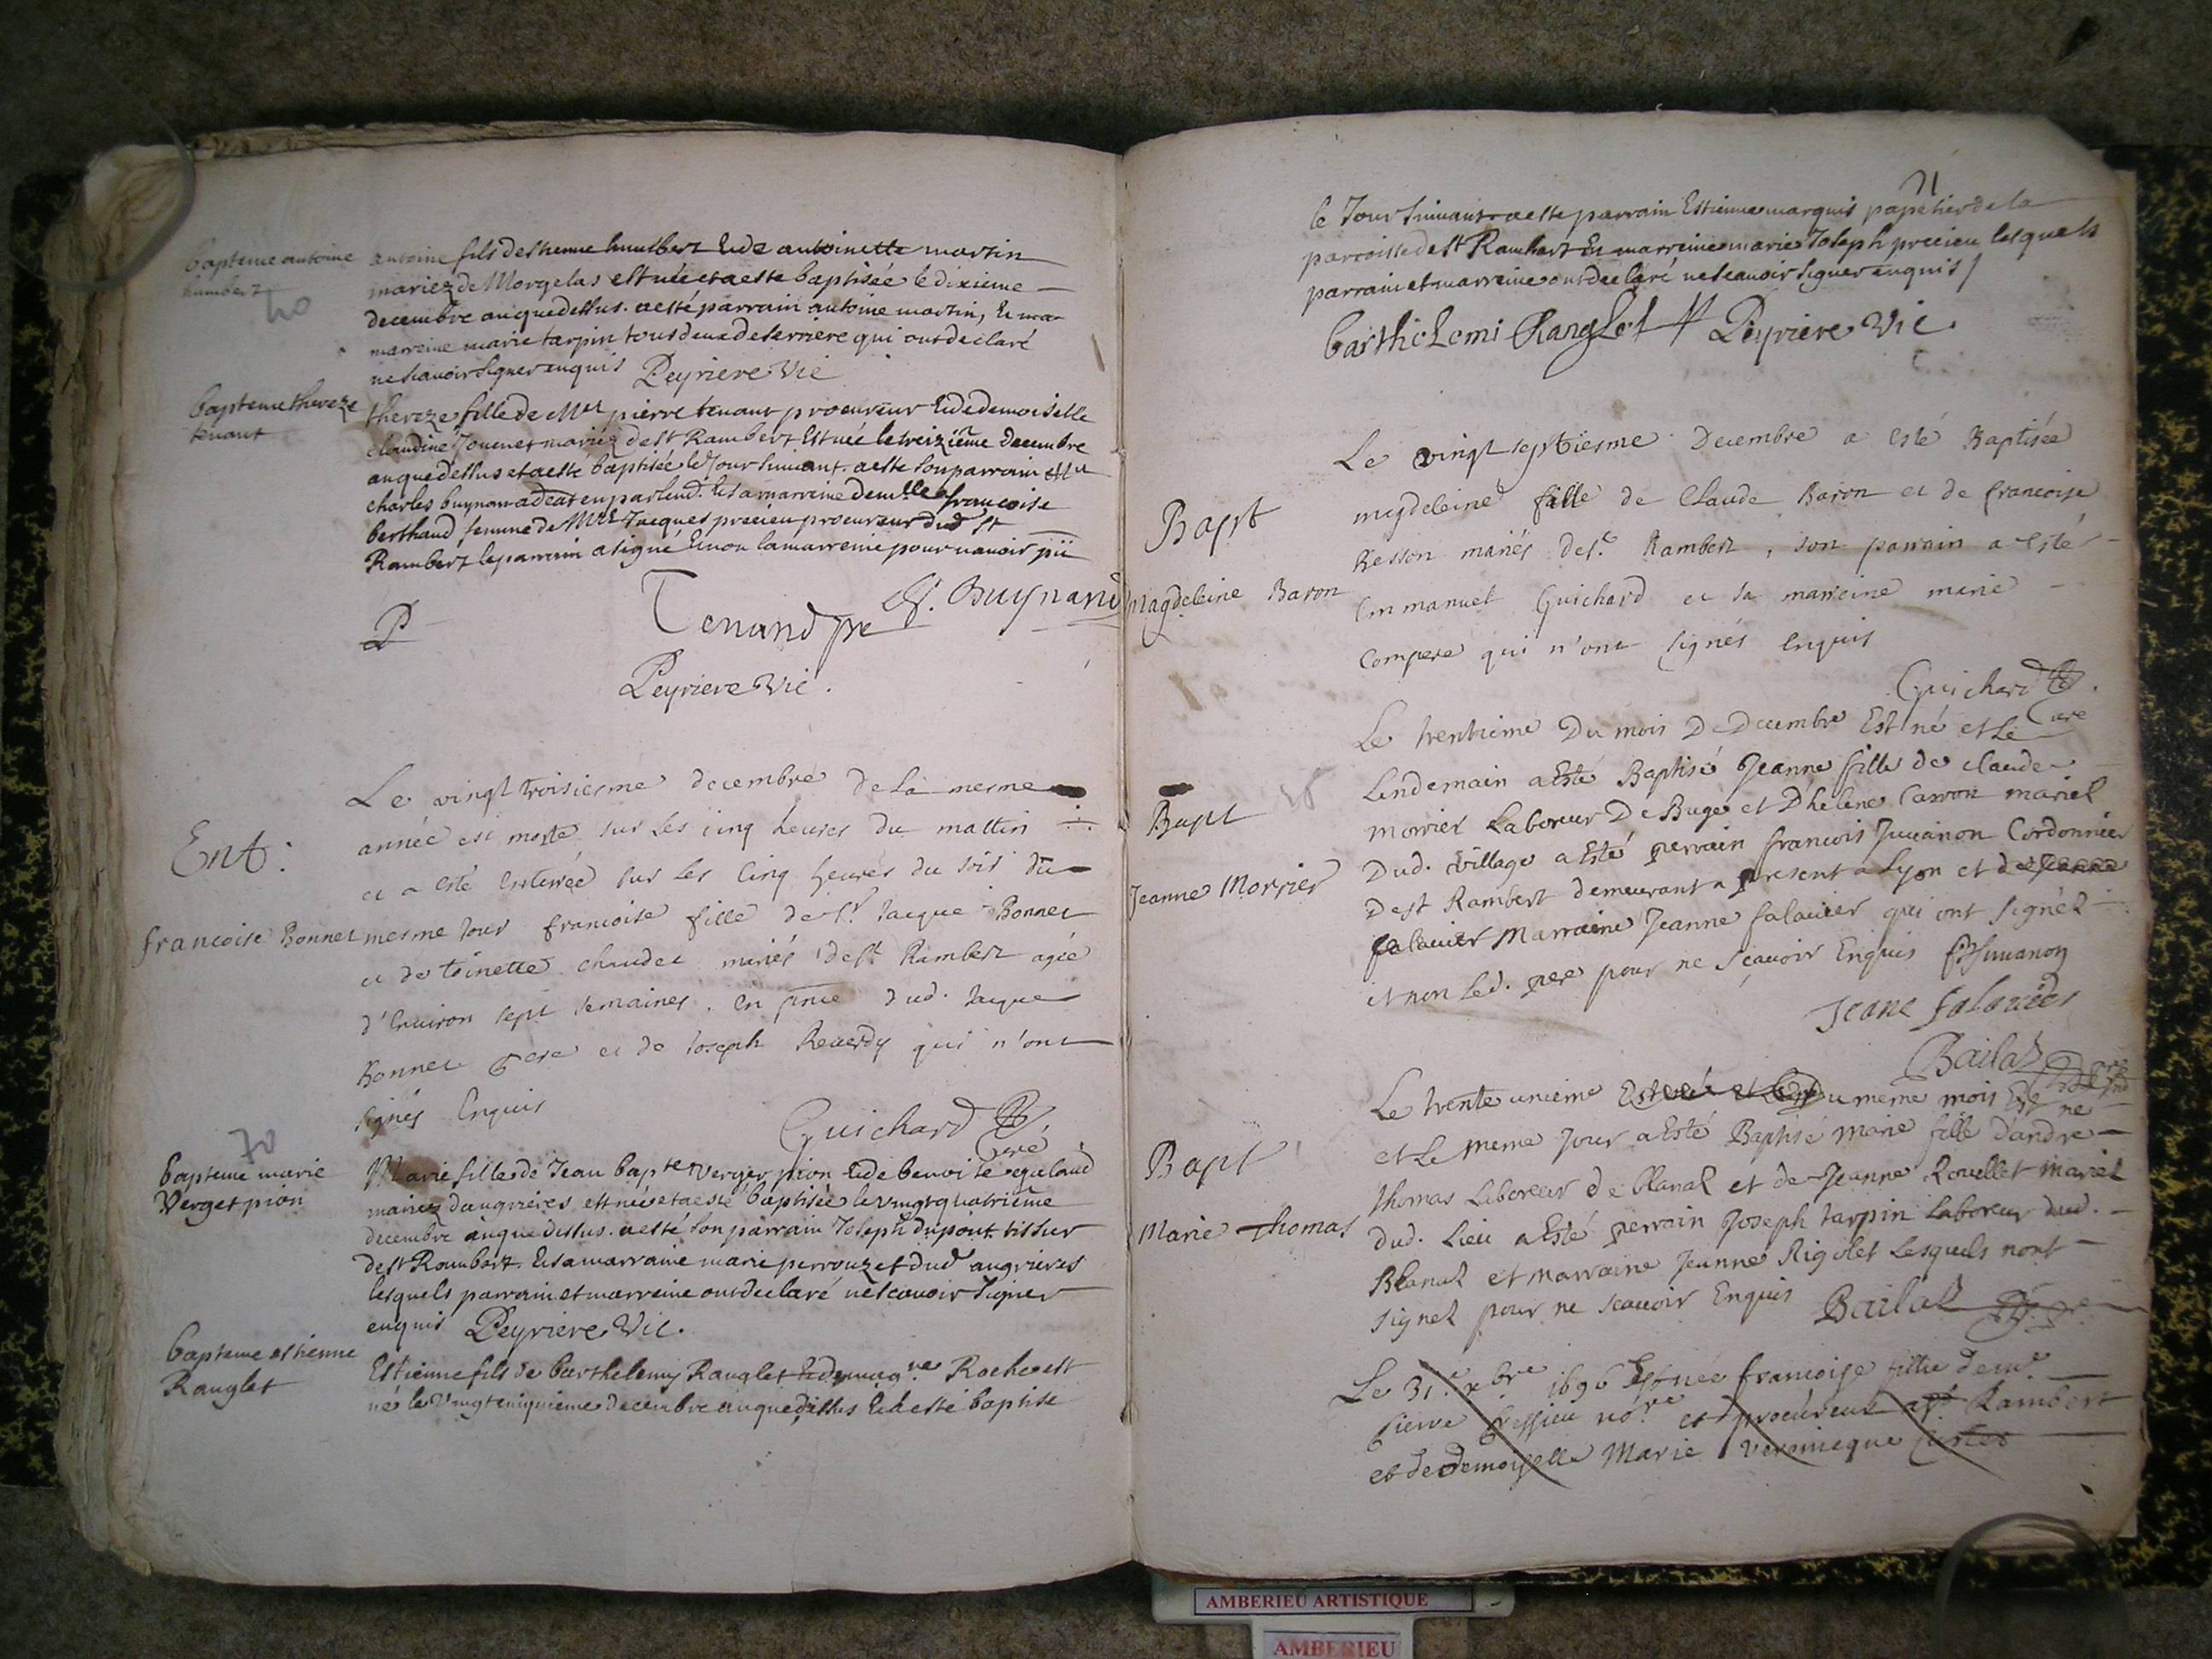 bapteme antoine
humbert
40
antoine fils destienne humbert & de antoinette martin
mariez de Morgelas est née et a este baptisée le dixieme
decembre an que dessus. a esté parrain antoine martin, & mar
marreine marie tarpin tous deux de serriere qui ont declaré
ne scavoir signer enquis Peyriere Vic
bapteme thereze
tenant
thereze fille de Mre pierre tenant procureur & de demoiselle
claudine Jouenet mariez de st Rambert Est née le treizième decembre
an que dessus et a este baptisée le Jour suivant. a este son parrain Mre
charles buynan adcat en parlemd. & sa marreine demlle francoise
berthaud femme de Mre Jacques precieu procureur dud st
Rambert le parrain a signé & non la marreine pour n'avoir
Tenand pre Buynand
Peyriere Vic.
Ent:
francoise Bonnet
Le vingt troisiesme decembre de la mesme
année est morte sur les cinq heures du mattin
et a esté enterrée sur les cinq heures du soir du
mesme jour francoise fille de Sr Jacque Bonnet
et de toinette chaudet mariés de st Rambert agée
d'environ sept semaines. en pnce dud. Jacque
Bonnet pere et de Joseph Reverdy qui n'ont
signés Enquis
Guichard
Curé
70
bapteme marie
Verget pion
Marie fille de Jean bapte Verger pion & de benoite galand
mariez d'angrieres est née et a esté baptisée le vingt quatrième
decembre an que dessus. a esté son parrain Joseph dupont tissur
de st Rambert. & sa marraine marie perrouzet dud angrieres
lesquels parrain et marreine ont declaré ne scavoir signer
enquis Peyriere Vic.
bapteme estienne
Ranglet
Estienne fils de barthelemy Ranglet & de magne Roche est
né le vingt cinquieme decembre an que dessus & a esté baptisé
71
le Jour suivant a este parrain Estienne marquis papetier de la
parroisse de st Rambert & marreine marie Joseph precieu lesquels
parrain et marreine ont declaré ne scavoir signer enquis
barthelemi Ranglet Peyriere Vic.
Bapt
Magdeleine Baron
Le vingt septiesme Decembre a esté Baptisée
magdeleine fille de Claude Baron et de francoise
Resson mariés de st Rambert, son parrain a esté
Emmanuel Guichard et sa marreine marie
Compere qui n'ont signés enquis
Guichard
Cure
Bapt
Jeanne Morrier
Le trentieme Du mois De Decembre Est né et Le
Lendemain a Esté Baptisé Jeanne fille de claude
morrier Laboreur De Buge et D'helene Carron mariel
Dud. village a Esté perrain francois Juuanon Cordonnier
De st Rambert demeurant a present a Lyon et de Jeanne
falavier Marraine Jeanne falavier qui ont signéz
et non led. pere pour ne sçavoir Enquis fJuuanon
Jeane falavier
Bailat
Bapt
Marie Thomas
Le trente unieme Est né et Le du même mois Est né
et Le meme Jour a Esté Baptisé Marie fille d'andre
thomas Laboreur de blanaz et de Jeanne Rouellet mariéz
dud. Lieu a Esté perrain Joseph tarpin Laboreur dud.
Blanaz et marraine Jeanne Rigolet Lesquels n'ont
signez pour ne scavoir Enquis Bailat
Le 31.e xbre 1696 Est née francoise fille de me
pierre Cressieu nore et procureur a st Rambert
et de demoiselle Marie Veronicque
AMBERIEU ARTISTIQUE
AMBERIEU